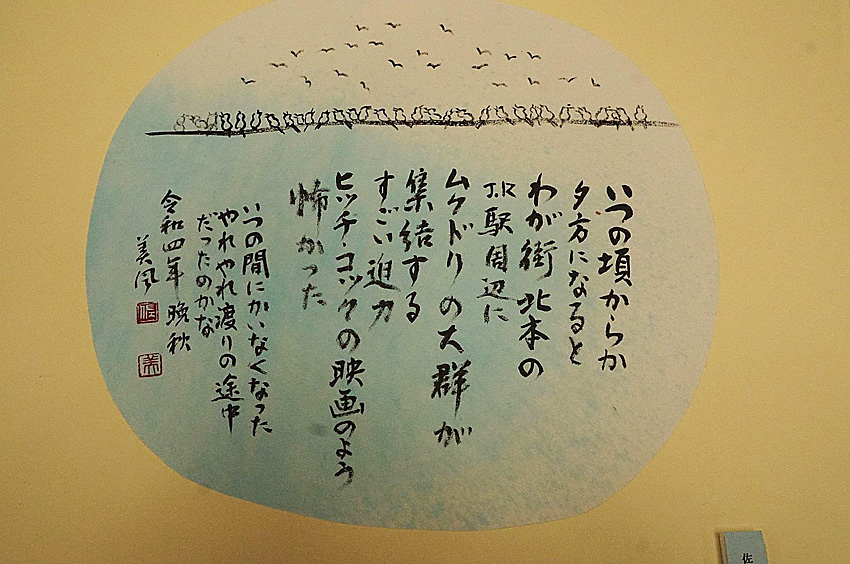 いつの頃からか
夕方になると
わが街 北本の
JR駅周辺に
ムクドリの大群が
集結する
すごい迫力
ヒッチ・コックの映画のよう
怖かった
いつの間にかいなくなった
やれやれ渡りの途中
だったのかな
令和四年 晩秋
美風
佐